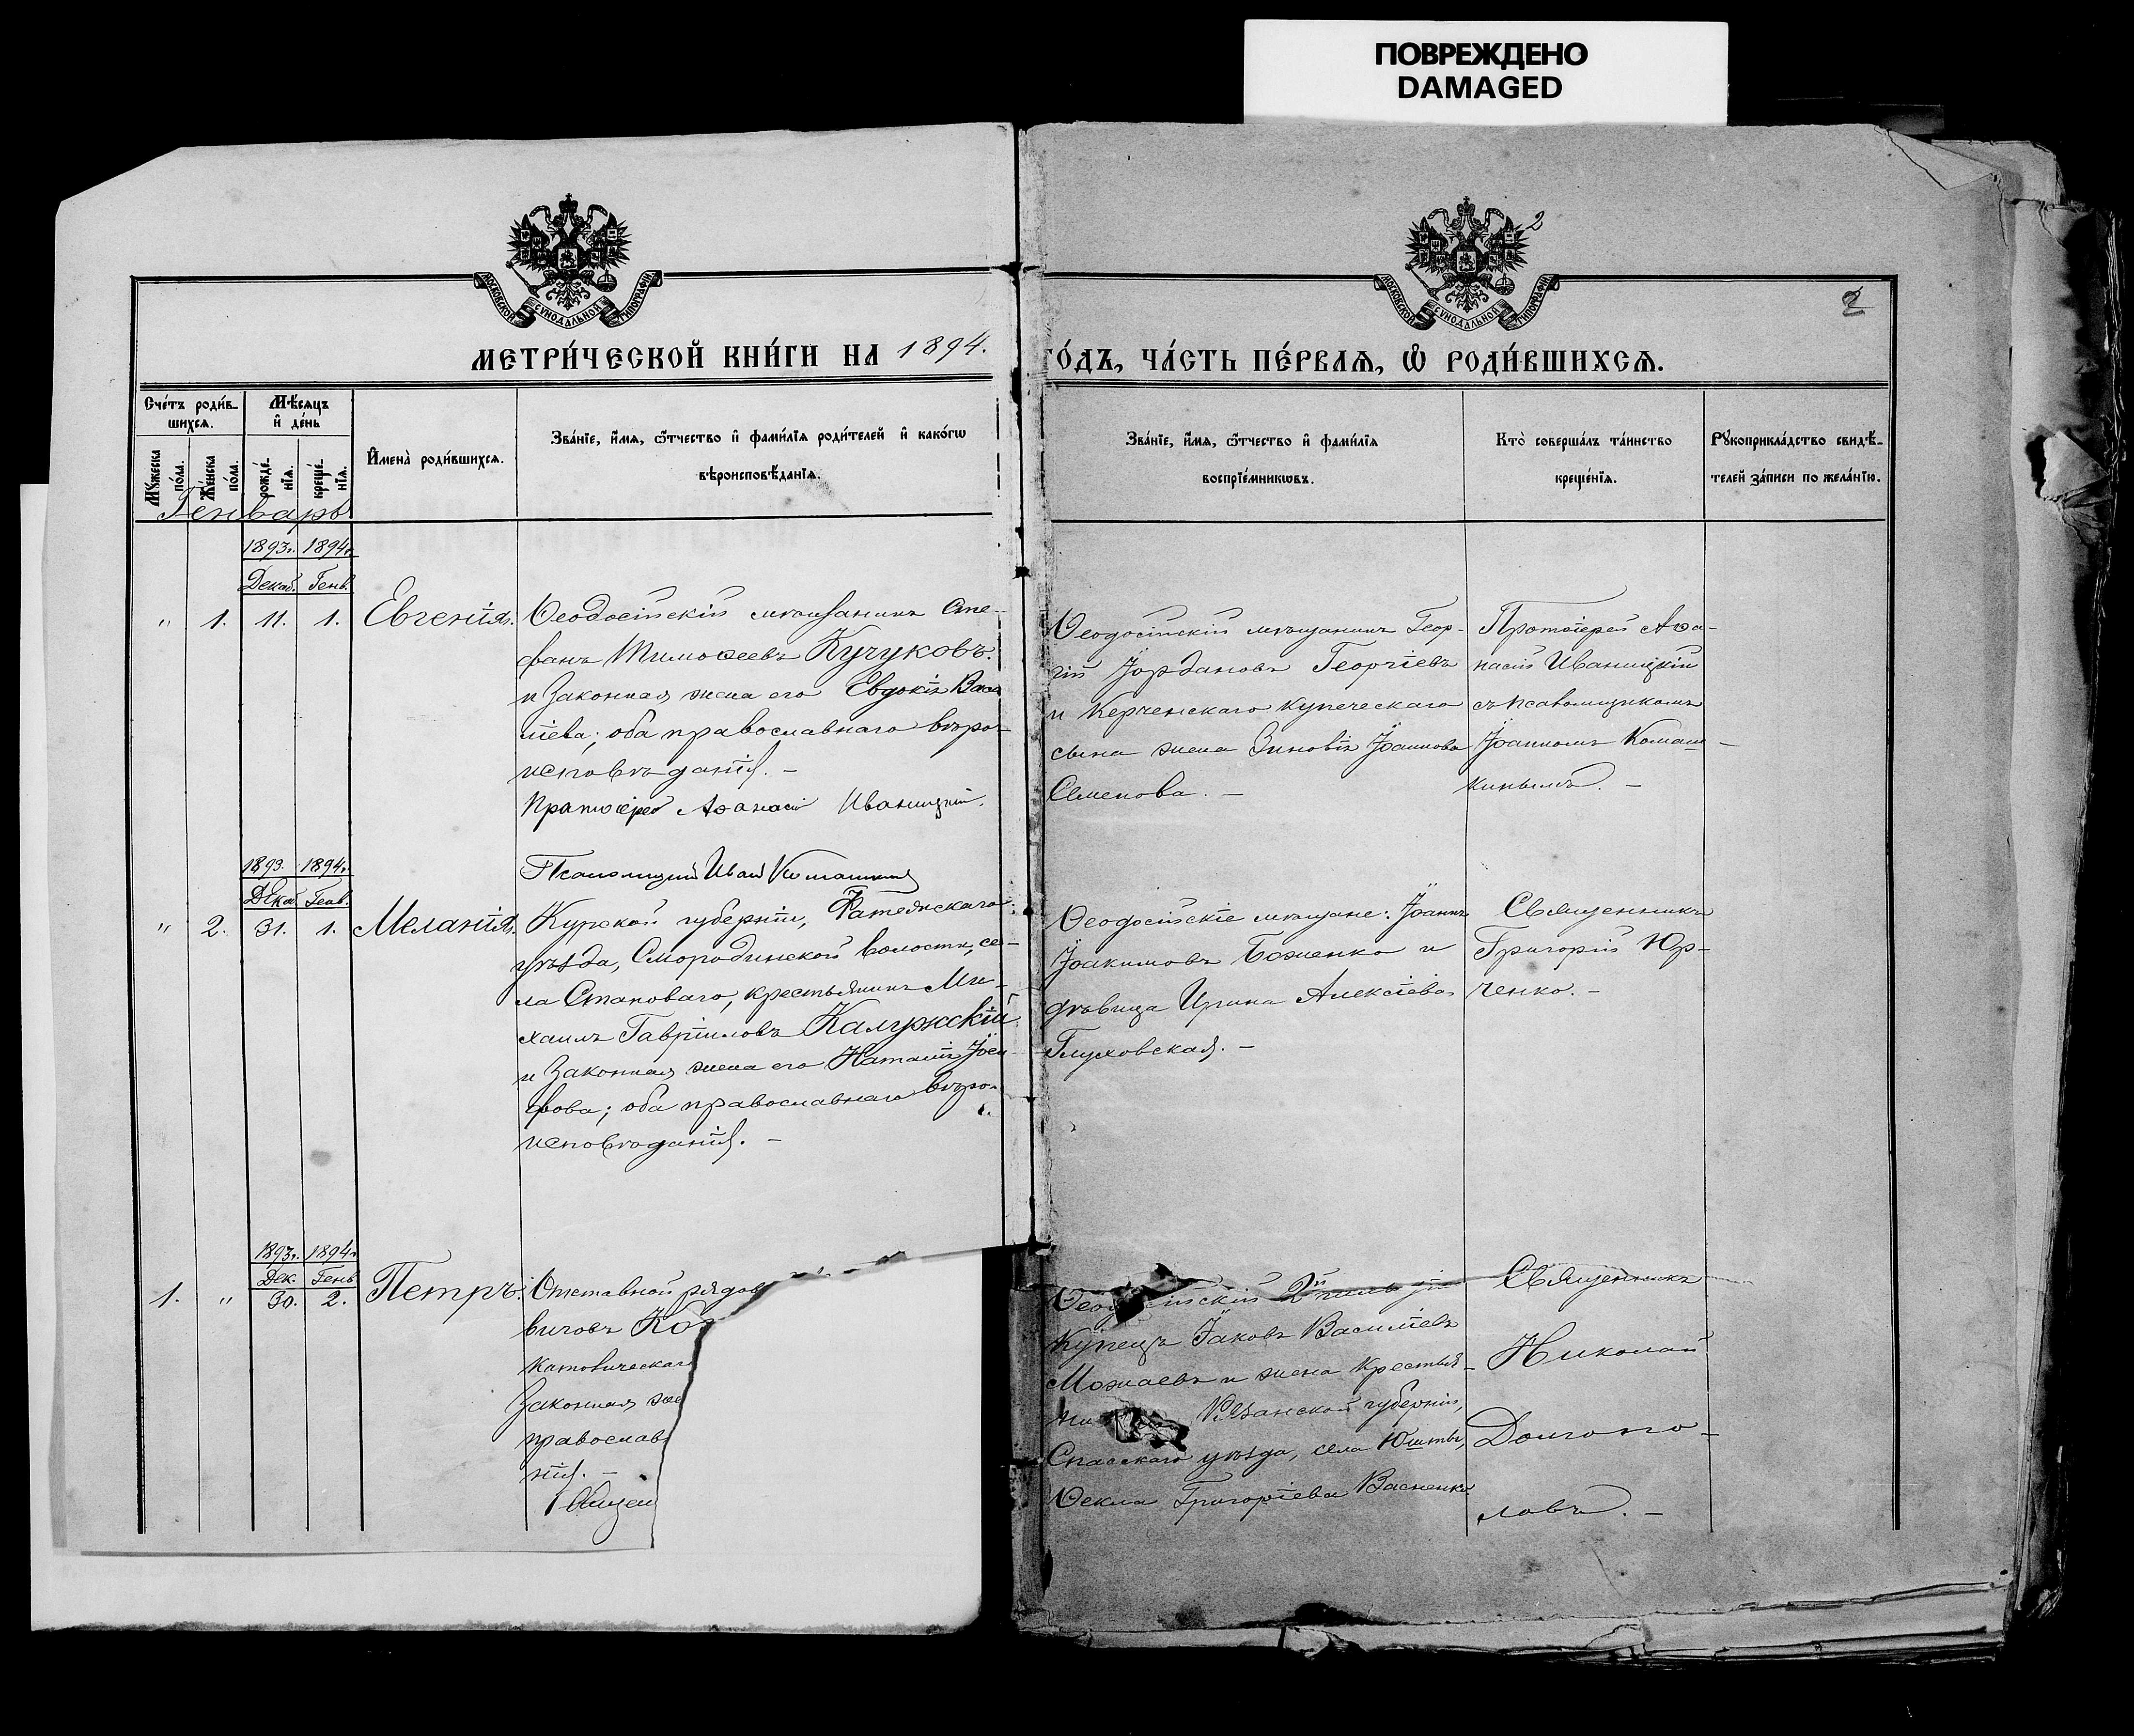 ПОВРЕЖДЕНО
DAMAGED
2
2
МОСКОВСКОЙ СѴНОДАЛЬНОЙ ТИПОГРАФІИ
МОСКОВСКОЙ СѴНОДАЛЬНОЙ ТИПОГРАФІИ
МЕТРИ́ЧЕСКОЙ КНИ́ГИ НА 1894.
ГО́ДЪ, ЧА́СТЬ ПЕ́РВАѦ, Ѡ҆ РОДИ́ВШИХСѦ.
Сче́тъ роди́в-
шихсѧ.
Мѣ́сѧцъ
и҆ де́нь
Мꙋ́жеска
по́ла.
Же́нска
по́ла.
рожде́-
нїѧ.
креще́-
нїѧ.
И҆мена̀ роди́вшихсѧ.
Зва́нїе, и҆́мѧ, ѻ҆́тчество и҆ фами́лїѧ роди́телей и҆ како́гѡ
вѣроисповѣ́данїѧ.
Зва́нїе, и҆́мѧ, ѻ҆́тчество и҆ фами́лїѧ
воспрїе́мникѡвъ.
Кто̀ соверша́лъ та́инство
креще́нїѧ.
Рꙋкоприкла́дство свидѣ́-
телей за́писи по жела́нїю.
Генварь
1893г. 1894г.
Декаб. Генв.
" 1. 11. 1. Евгенія.
Ѳеодосійскій мѣщанинъ Сте-
фанъ Тимоѳеевъ Кучуковъ.
и законная жена его Евдокія Васи
ліева; оба православнаго вѣро-
исповѣданія. –
Протоіерей Аѳанасій Иваницкій.
Псаломщикъ Иванъ Комашкинъ
Ѳеодосійскій мѣщанинъ Геор-
гій Іордановъ Георгіевъ
и Керченскаго купеческаго
сына жена Зиновія Іоаннова
Семенова. –
Протоіерей Аѳа-
насій Иваницкій
съ псаломщикомъ
Іоанномъ Комаш-
кинымъ. –
1893. 1894г.
Декаб. Генв.
" 2. 31. 1. Меланія.
Курской губерніи, Фатежскаго
уѣзда, Смородинской волости, се-
ла Становаго, крестьянинъ Ми-
хаилъ Гавріиловъ Калужскій
и законная жена его Наталія Іоси-
фова; оба православнаго вѣро-
исповѣданія. –
Ѳеодосійскіе мѣщане: Іоаннъ
Іоакимовъ Боженко и
дѣвица Ирина Алексіева
Глуховская. –
Священникъ
Григорій Юр-
ченко. –
1893г. 1894г.
Дек. Генв.
1. " 30. 2. Петръ.
Отставной рядов
вичовъ Ко
католическаг
законная же
православ
нія. –
Ѳеодосійскій 2й
Купецъ Іаковъ Василіевъ
Можаевъ и жена крестья-
Рязанской губерніи,
Спасскаго уѣзда, села
Ѳекла Григоріева
Священникъ
Николай
Долгопо-
ловъ. –